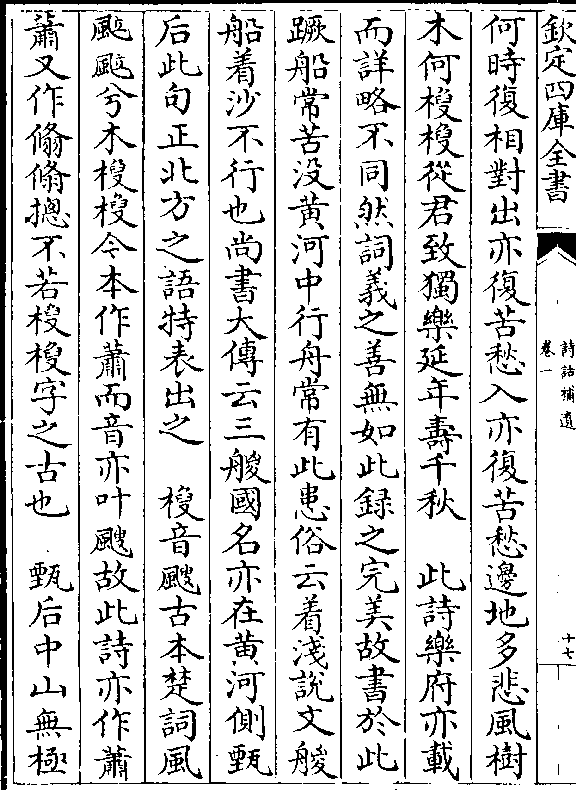 欽定四庫全書
詩話補遺
卷一
十七
何時復相對出亦復苦愁入亦復苦愁邊地多悲風樹
木何梭梭從君致獨樂延年壽千秋　此詩樂府亦載
而詳略不同然詞義之善無如此録之完美故書於此
蹶船常苦没黄河中行舟常有此患俗云着淺說文艐
船着沙不行也尚書大傳云三艐國名亦在黄河側甄
后此句正北方之語特表出之　梭音颼古本楚詞風
颼颼兮木梭梭今本作蕭而音亦叶颼故此詩亦作蕭
蕭又作翛翛摠不若梭梭字之古也　甄后中山無極